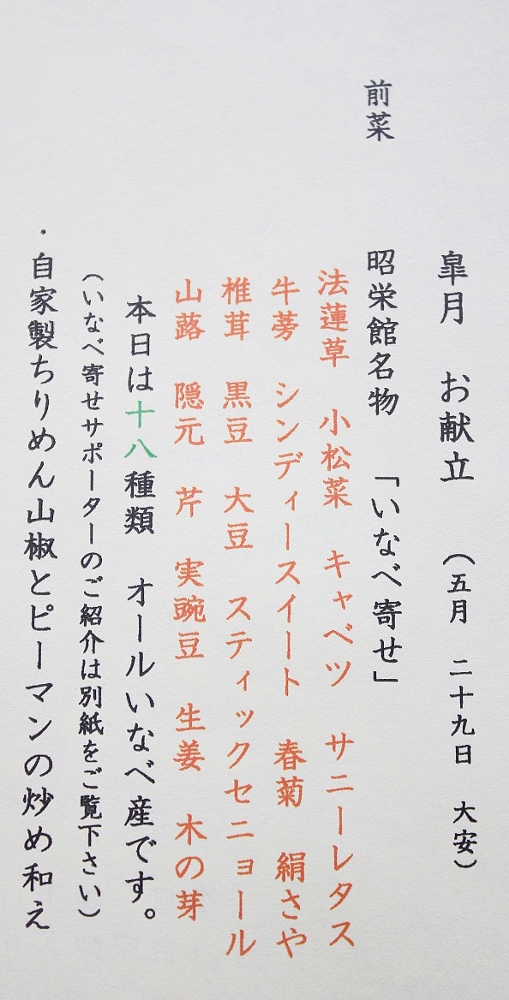 皐月 お献立 (五月 二十九日 大安)
前菜 昭栄館名物 「いなべ寄せ」
法蓮草 小松菜 キャベツ サニーレタス
牛蒡 シンディースイート 春菊 絹さや
椎茸 黒豆 大豆 スティックセニョール
山蕗 隠元 芹 実豌豆 生姜 木の芽
本日は十八種類 オールいなべ産です。
(いなべ寄せサポーターのご紹介は別紙をご覧下さい)
・自家製ちりめん山椒とピーマンの炒め和え